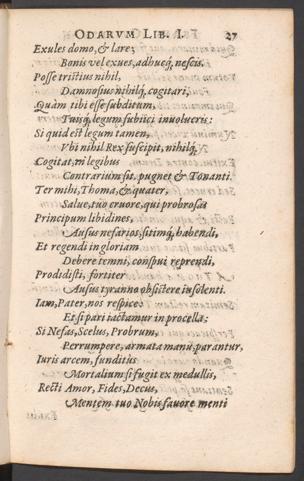 ODARVM LIB. I. 27
Exules domo, & lare;
Bonis vel exues, adhucq́, nescis.
Posse tristius nihil,
Damnosius nihilq́, cogitari,
Quàm tibi esse subditum,
Tuisq́, legum subiici inuolucris:
Si quid est legum tamen,
Vbi nihil Rex suscipit, nihilq́,
Cogitat, ni legibus
Contrarium sit. pugnet & Tonanti.
Ter mihi, Thoma, & quater,
Salue, tuo cruore, qui probrosas
Principum libidines,
Ausus nefarios, sitimq́, habendi,
Et regendi ingloriam
Debere temni, conspui reprendi,
Prodidisti, fortiter
Ausus tyranno obsistere insolenti.
Iam, Pater, nos respice
Et si pari iactamur in procella:
Si Nefas, Scelus, Probrum,
Perrumpere, armata manu, parantur,
Iuris arcem, funditus
Mortalium si fugit ex medullis,
Recti Amor, Fides, Decus,
Mentem tuo Nobis fauore menti